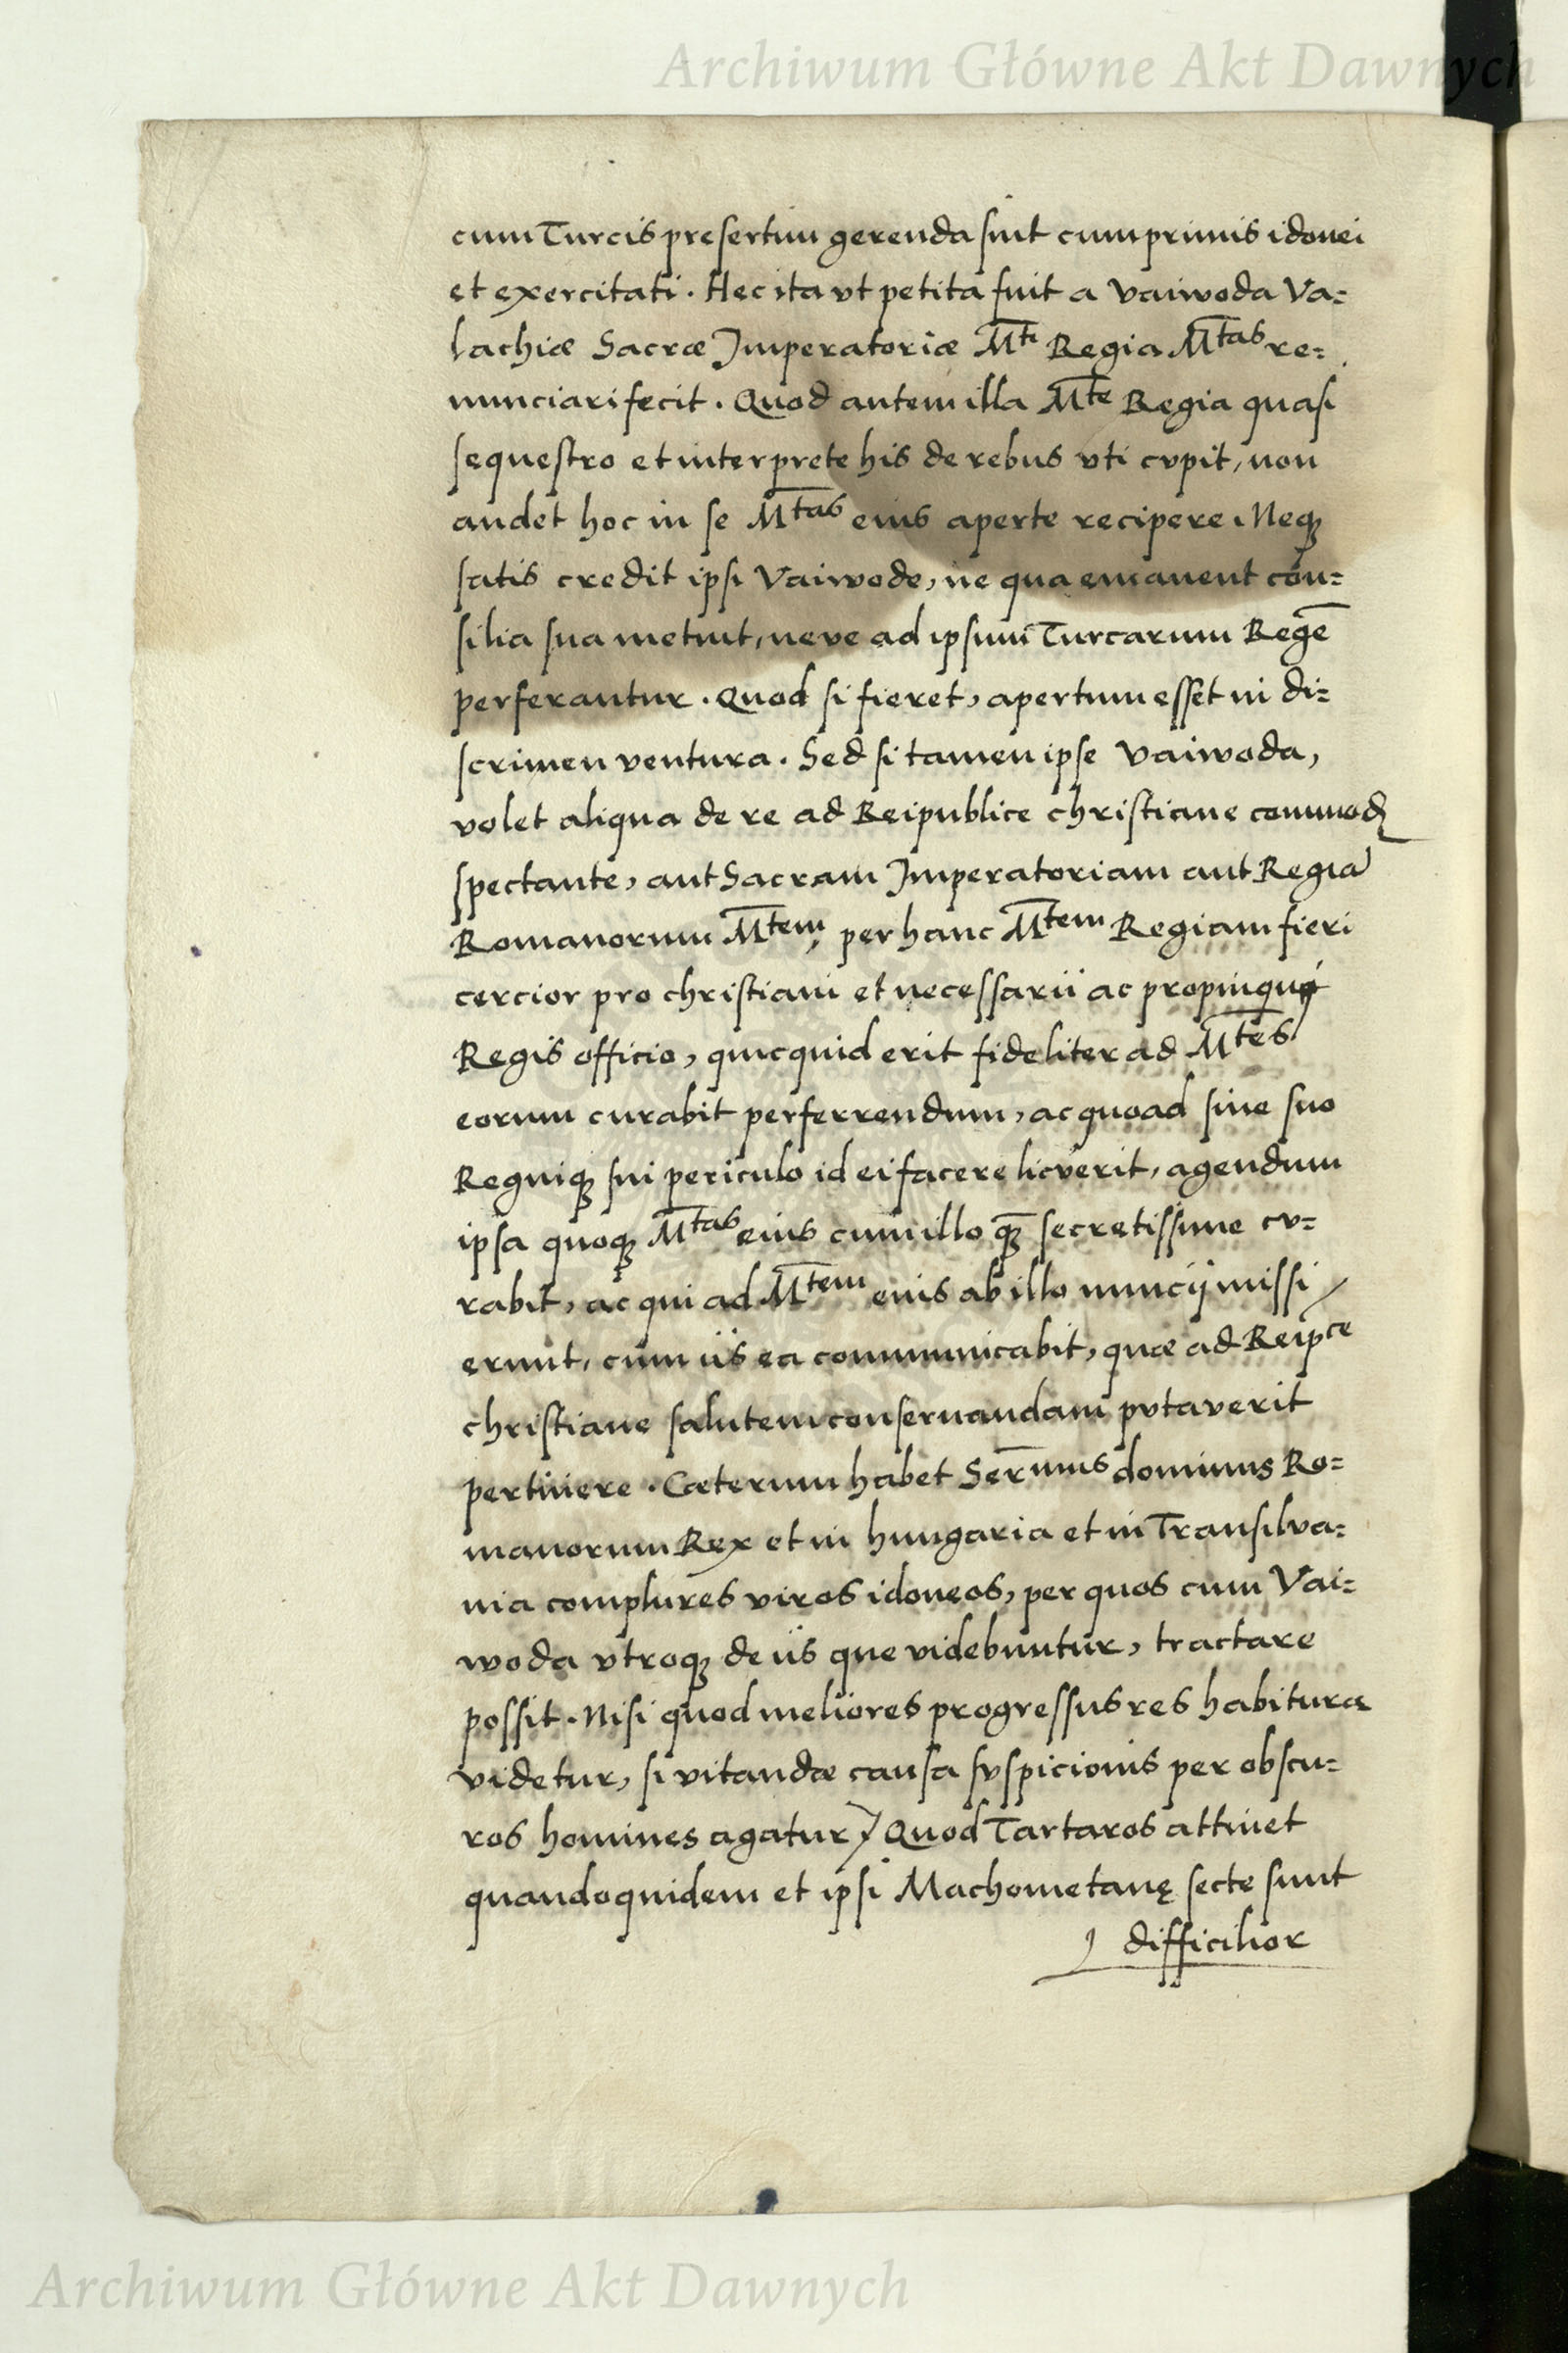 Archiwum Główne Akt Dawnych
cum Turcis presertim gerenda sint cum primis idonei
et exercitati. Hec ita vt petita fuit a Vaiwoda Va=
lachiæ Sacræ Imperatoriæ M^ti Regia M^tas re=
nunciari fecit. Quod autem illa M^te Regia quasi
sequestro et interprete his de rebus vti cvpit, non
audet hoc in se M^tas eius aperte recipere. Neqꝫ
satis credit ipsi Vaiwode, ne qua emanent con=
silia sua metuit, neve ad ipsum Turcarum Regē
perferantur. Quod si fieret, apertum esset in di=
scrimen ventura. Sed si tamen ipse Vaiwoda,
volet aliqua de re ad Reipublice christiane commodꝫ
spectante, aut Sacram Imperatoriam aut Regiā
Romanorum M^tem, per hanc M^tem Regiam fieri
cercior pro christiani et necessarii ac propinqui
Regis officio, quicquid erit fideliter ad M^tes
eorum curabit perferrendum, ac quoad sine suo
Regniqꝫ sui periculo id ei facere licverit, agendum
ipsa quoqꝫ M^tas eius cum illo qꝫ̄ secretissime cv=
rabit, ac qui ad M^tem eius ab illo nuncij missi
erunt, cum iis ea communicabit, quæ ad Reip^ce
christiane salutem conseruandam pvtaverit
pertinere. Cæterum habet Ser̄mus dominus Ro=
manorum Rex et in hungaria et in Transilva=
nia complures viros idoneos, per quos cum Vai=
woda vtroqꝫ de iis que videbuntur, tractare
possit. Nisi quod meliores progressus res habitura
videtur, si vitandæ causa svspicionis per obscu=
ros homines agatur / Quod Tartaros attinet
quandoquidem et ipsi Machometanę secte sunt
difficilior
Archiwum Główne Akt Dawnych